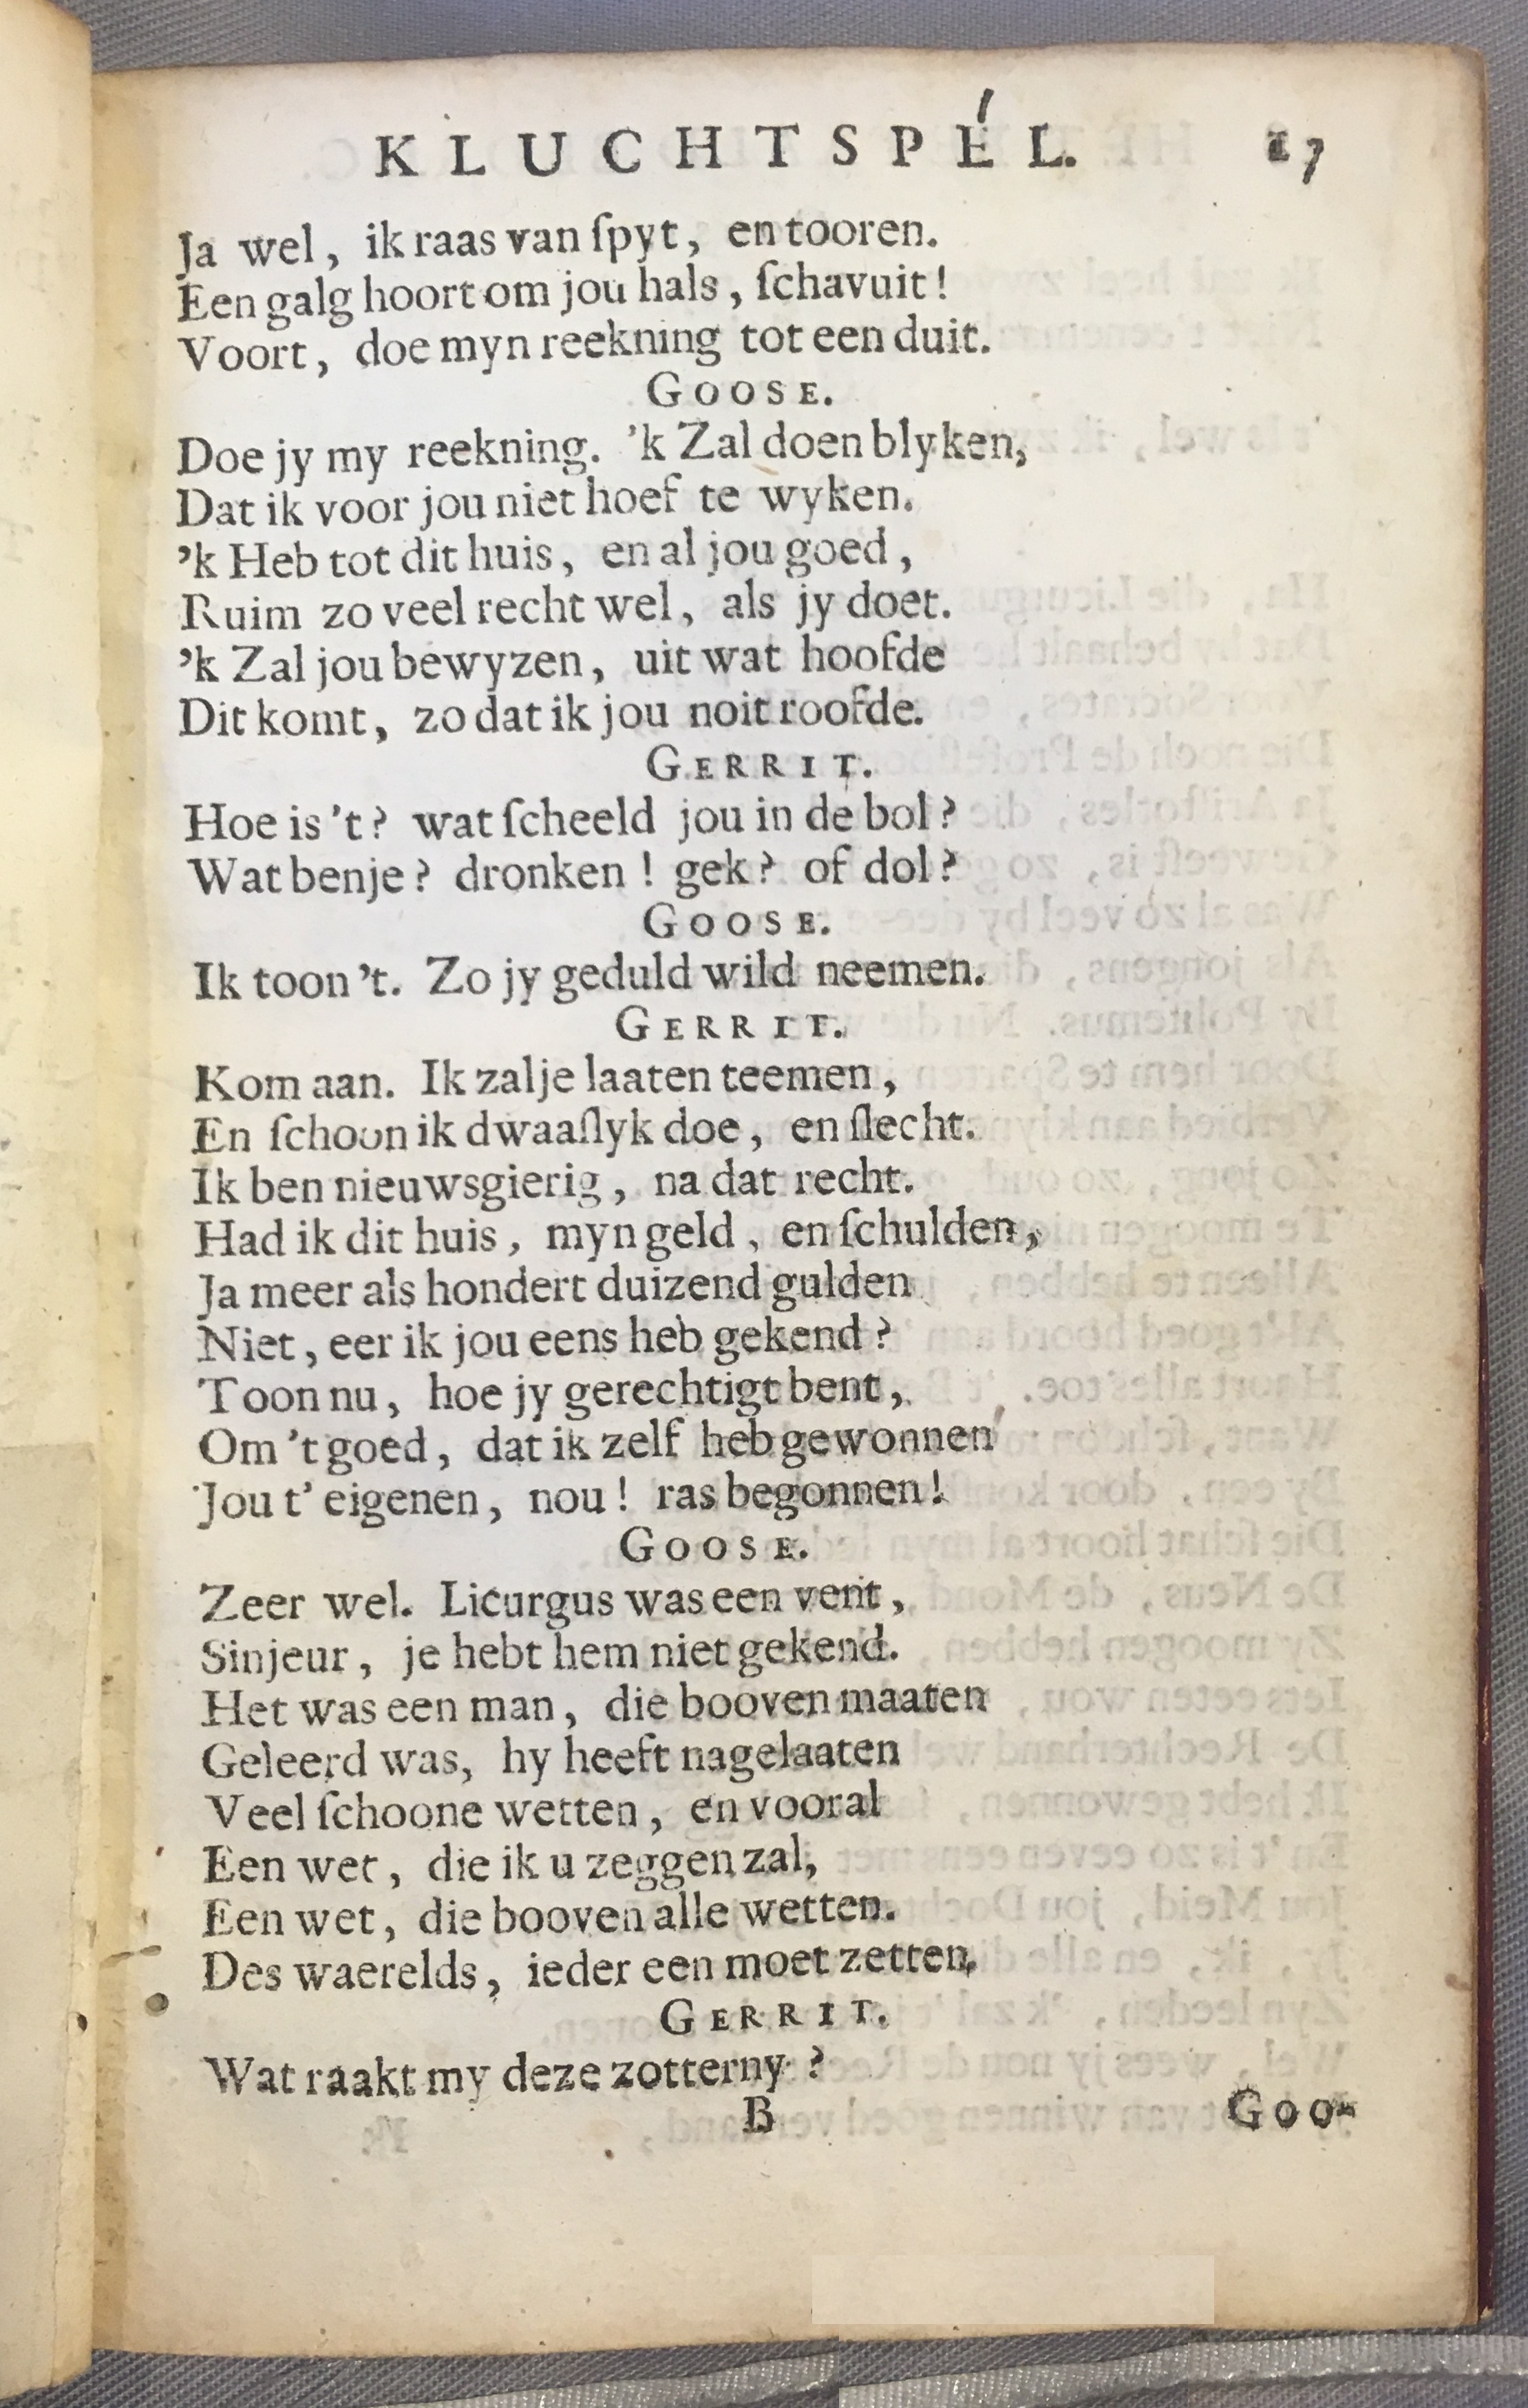 KLUCHTSPEL. 17
Ja wel, ik raas van ſpyt, en tooren.
Een galg hoort om jou hals, ſchavuit!
Voort, doe myn reekning tot een duit.
GOOSE.
Doe jy my reekning. 'k Zal doen blyken,
Dat ik voor jou niet hoef te wyken.
'k Heb tot dit huis, en al jou goed,
Ruim zo veel recht wel, als jy doet.
'k Zal jou bewyzen, uit wat hoofde
Dit komt, zo dat ik jou noit roofde.
GERRIT.
Hoe is 't? wat ſcheeld jou in de bol?
Wat benje? dronken! gek? of dol?
GOOSE.
Ik toon 't. Zo jy geduld wild neemen.
GERRIT.
Kom aan. Ik zal je laaten teemen,
En ſchoon ik dwaaſlyk doe, en ſlecht.
Ik ben nieuwsgierig, na dat recht.
Had ik dit huis, myn geld, en ſchulden,
Ja meer als hondert duizend gulden
Niet, eer ik jou eens heb gekend?
Toon nu, hoe jy gerechtigt bent,
Om 't goed, dat ik zelf heb gewonnen
Jou t' eigenen, nou! ras begonnen!
GOOSE.
Zeer wel. Licurgus was een vent,
Sinjeur, je hebt hem niet gekend.
Het was een man, die booven maaten
Geleerd was, hy heeft nagelaaten
Veel ſchoone wetten, en vooral
Een wet, die ik u zeggen zal,
Een wet, die booven alle wetten.
Des waerelds, ieder een moet zetten,
GERRIT.
Wat raakt my deze zotterny?
B Goo-